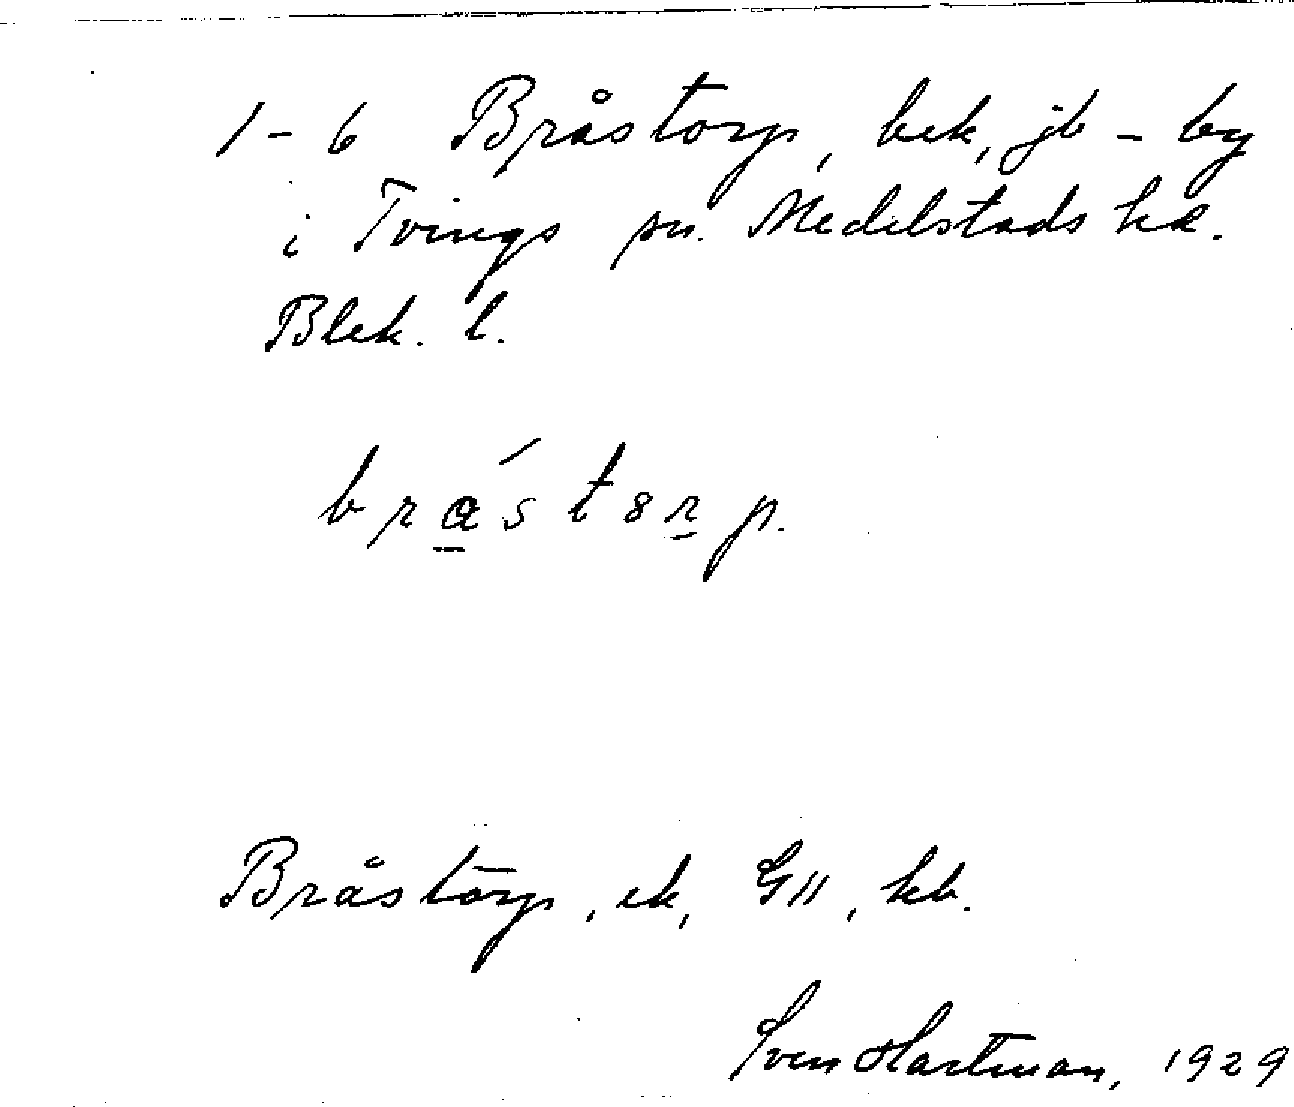 1-6 Bråstorp, bek, jb-by
i Tvings sn. Medelstads hd.
Blek. l.
brá̲st8r̲p.
Bråstorp, ek, GII, kb.
Sven Hartman, 1929